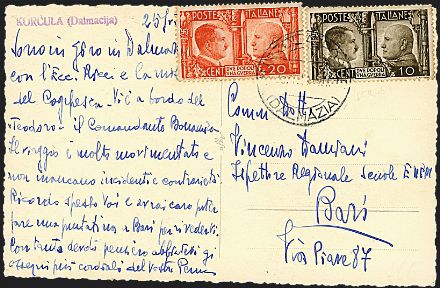 KORČULA (Dalmacija)
25/
POSTE ITALIANE
CENT 20
DUE POPOLI
UNA GUERRA
POSTE ITALIANE
CENT 10
DUE POPOLI
UNA GUERRA
(DALMAZIA)
Sono in giro in Dalmazia
con l'Ecc. Ricci e
del Vi è a bordo del
Teodoro - il Comandante
Il viaggio è molto movimentato e
non mancano incidenti e contrarietà
Ricordo spesso Voi e avrei caro
fare una puntatina a Bari per rivederti.
Con tanta devoti gli
ossequi più cordiali del vostro
Comm
Vincenzo Damiani
Ispettore Regionale Scuole
Bari
Via Piave 87